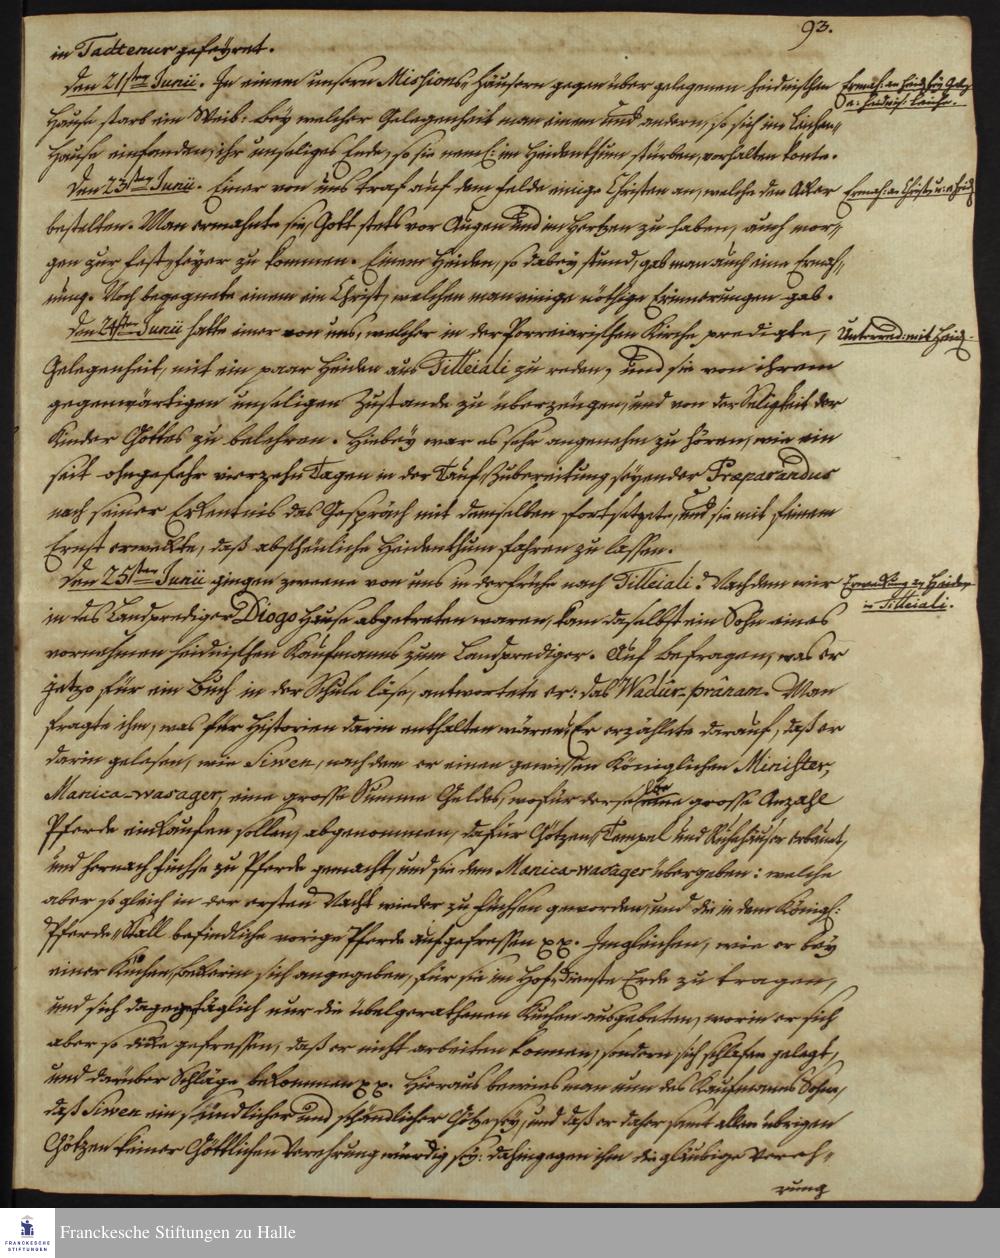 93.
in Tadtenur gefeyret.
den 21sten Junii. In einem unsern Missions-Häusern gegenüber gelegenen heidnischen
Hause starb ein Weib: bey welcher Gelegenheit man einem und andern, so sich im Leichen-
Hause einfanden, ihr unseliges Ende, so sie neml: im Heidenthum stürben, vorhalten konte.
den 23sten Junii. Einer von uns traf auf dem felde einige Christen an, welche den Aker
Ermah: an Christ: u: Heid:
bestelten. Man ermahnte sie, Gott stets vor Augen und im Hertzen zu haben, auch mor-
gen zur fest-feyer zu kommen. Einem Heiden, so dabey stund, gab man auch eine Ermah-
nung. Noch begegnete einem ein Christ, welchem man einige nöthige Erinnerungen gab.
den 24sten Junii hatte einer von uns, welcher in der Porreiarischen Kirche predigte,
Unterred: mit Heid:
Gelegenheit, mit ein paar Heiden aus Tilleiali zu reden, und sie von ihrem
gegenwärtigen unseligen Zustande zu überzeugen, und von der Seligkeit der
Kinder Gottes zu belehren. Hiebey war es sehr angenehm zu hören, wie ein
seit ohngefehr vierzehn Tagen in der Tauf-Zubereitung seyender Præparandus
nach seiner Erkentnis das Gespräch mit denselben fortsetzete, und sie mit feinem
Ernst erwekte, daß abscheuliche Heidenthum fahren zu lassen.
den 25sten Junii gingen zweene von uns in der frühe nach Tilleiali. Nachdem wir
Erwekung an Heiden
in Tilleiali.
in des Landprediger Diogo Hause abgetreten waren, kam daselbst ein Sohn eines
vornehmen heidnischen Kaufmanns zum Landprediger. Auf befragen, was er
jetzo für ein Buch in der Schule läse, antwortete er: das Wadur-prânam. Man
fragte ihn, was für Historien darin enthalten wären? Er erzählete darauf, daß er
darin gelesen, wie Siwen, nachdem er einen gewissen Königlichen Minister,
Manica-wasager, eine grosse Summe Geldes, wofür derselbe eine grosse Anzahl
Pferde einkaufen sollen, abgenommen, dafür Götzen-Tempel und Ruhehäuser erbauet,
und hernach füchse zu Pferde gemacht, und sie dem Manica-wasager übergeben: welche
aber so gleich in der ersten Nacht wieder zu füchsen geworden, und die in dem Königl:
Pferde-Stall befindliche vorige Pferde aufgefressen xx. Imgleichen, wie er bey
einer Kuchen-bekerin sich angegeben, für sie im Hof-dienste Erde zu tragen,
und sich dagegen täglich nur die übelgerathenen Kuchen ausgebeten, worin er sich
aber so dike gefressen, daß er nicht arbeiten können, sondern sich schlafen gelegt,
und darüber Schläge bekommen xx. Hieraus bewies man nun des Kaufmanns Sohn,
daß Siwen ein sündlicher und schändlicher Götze sey, und daß er daher samt allen übrigen
Götzen keiner Göttlichen Verehrung würdig sey: dahingegen ihm die gläubige Vereh-
rung
Franckesche Stiftungen zu Halle
FRANCKESCHE
STIFTUNGEN